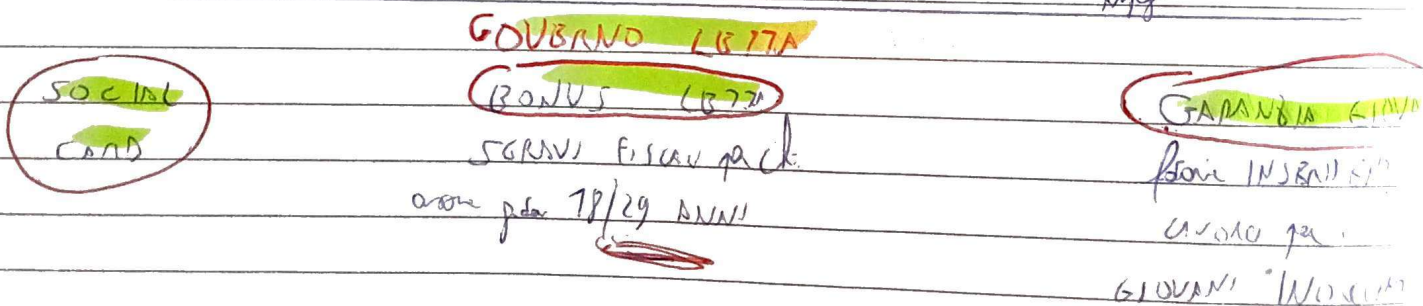 GOVERNO LETTA
SOCIAL
CARD
BONUS LETTA
SGRAVI FISCALI per chi
assume 18/29 ANNI
GARANZIA GIOVA
INSERI
lavoro per
GIOVANI